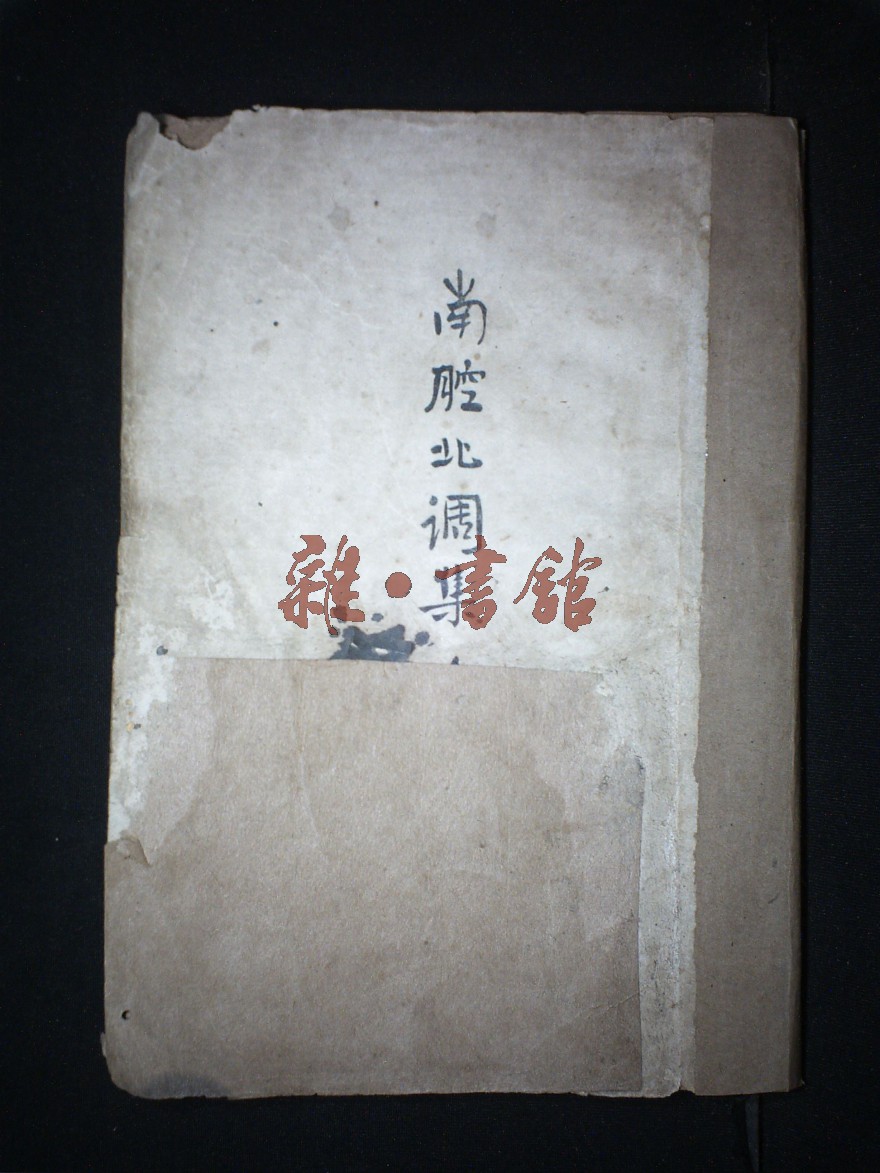 南腔北调集
雜·書館